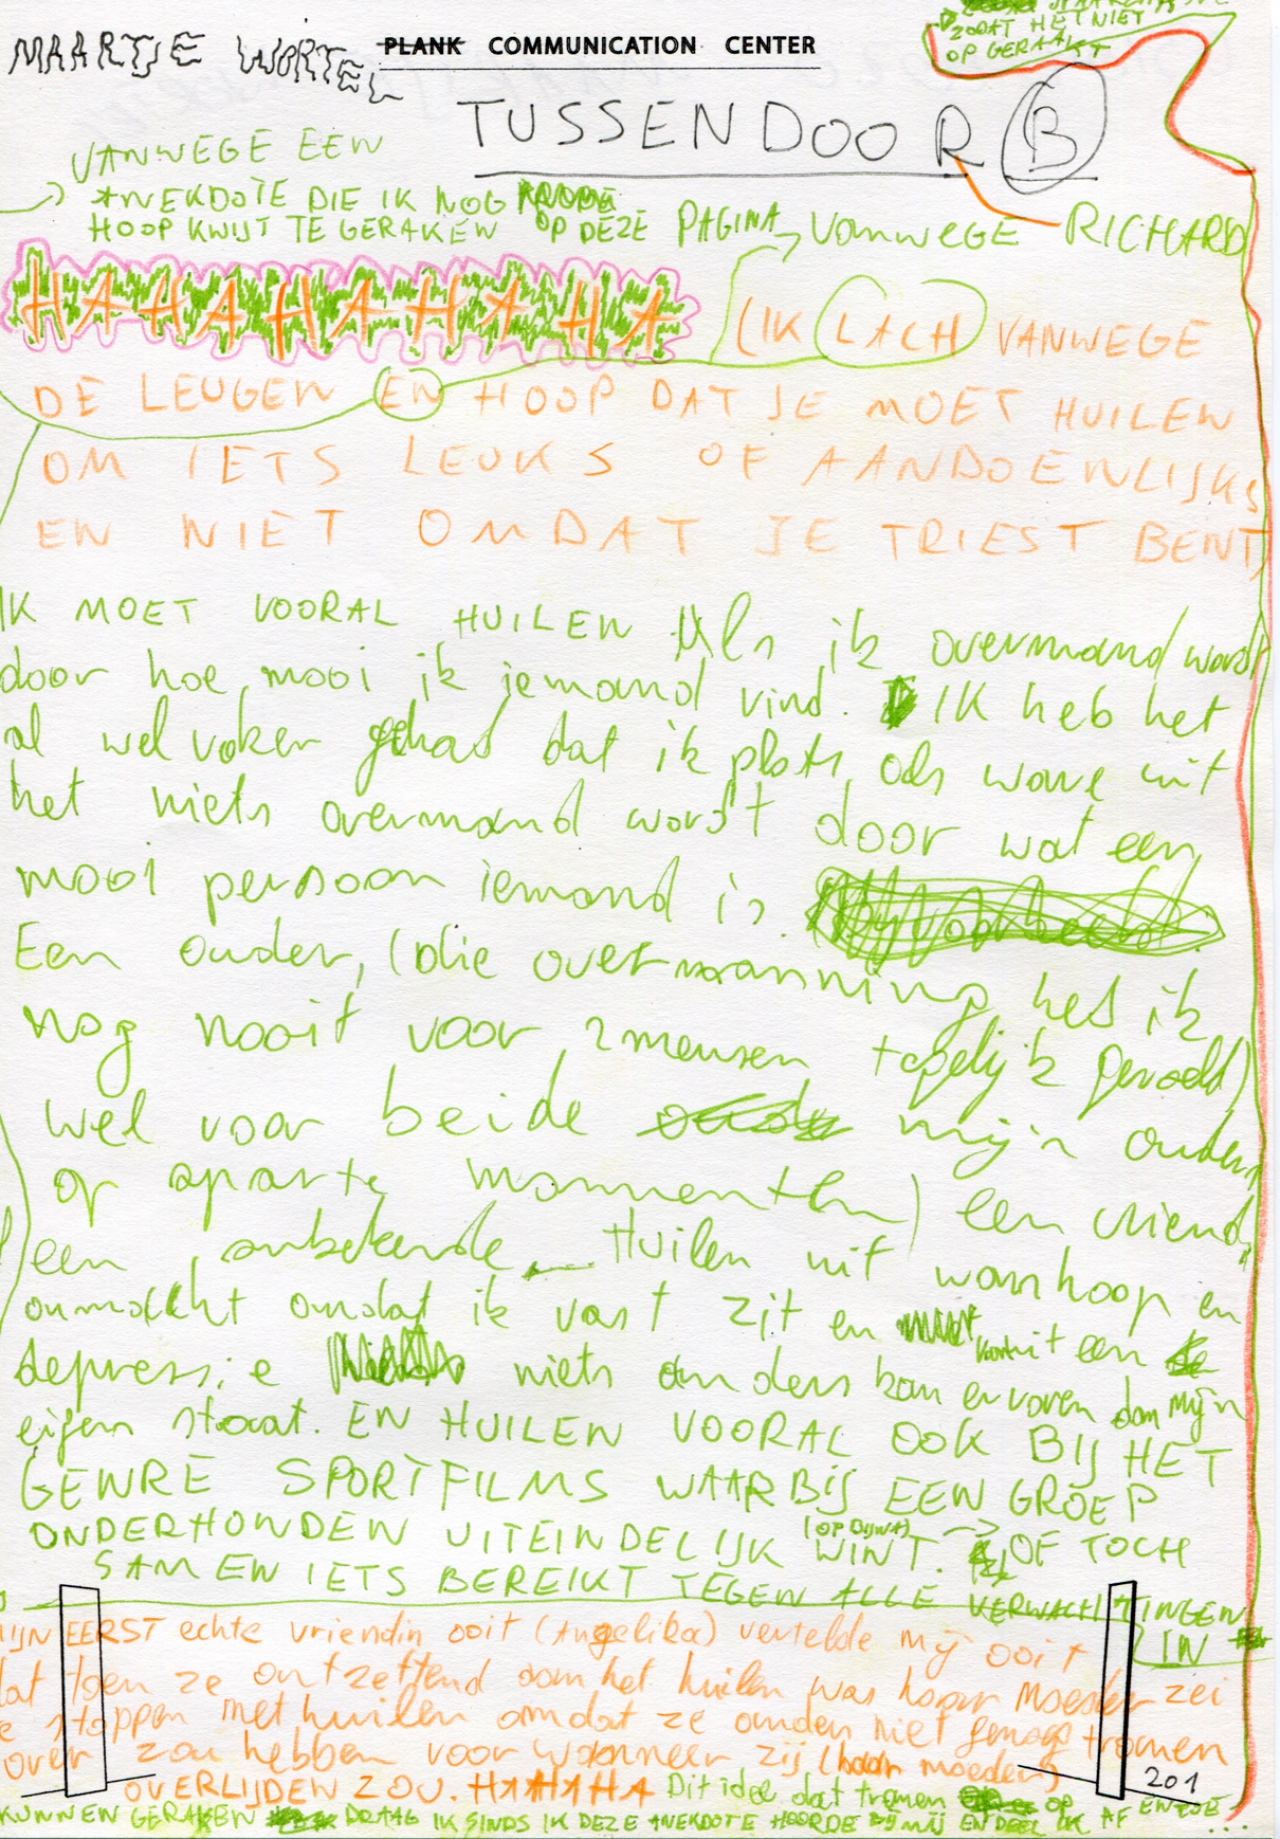 ZODAT HET NIET
OP GERAAKT
MAARTJE WORTEL
PLANK COMMUNICATION CENTER
TUSSENDOOR B
VANWEGE EEN
ANEKDOTE DIE IK NOG
HOOP KWIJT TE GERAKEN OP DEZE PAGINA
VANWEGE RICHARD
HAHAHAHAHAHA
(IK LACH VANWEGE
DE LEUGEN EN HOOP DAT JE MOET HUILEN
OM IETS LEUKS OF AANDOENLIJKS
EN NIET OMDAT JE TRIEST BENT)
IK MOET VOORAL HUILEN Als ik overmand wordt
door hoe mooi ik iemand vind. IK heb het
al wel vaker gehad dat ik plots als ware uit
het niets overmand wordt door wat een
mooi persoon iemand is.
Een ouder, (die overmanning heb ik
nog nooit voor 2 mensen tegelijk gevoeld)
wel voor beide mijn ouders
op aparte momenten) een vriend,
een onbekende. Huilen uit wanhoop en
onmacht omdat ik vast zit en vanuit een
depressie niets anders kan ervaren dan mijn
eigen staat. EN HUILEN VOORAL OOK BIJ HET
GENRE SPORTFILMS WAARBIJ EEN GROEP
ONDERHONDEN UITEINDELIJK (OP BIJNA) WINT. OF TOCH
SAMEN IETS BEREIKT TEGEN ALLE VERWACHTINGEN
IN
MIJN EERST echte vriendin ooit (Angelika) vertelde mij ooit
dat toen ze ontzettend aan het huilen was haar moeder zei
te stoppen met huilen omdat ze anders niet genoeg tranen
over zou hebben voor wanneer zij (haar moeder)
OVERLIJDEN ZOU. HAHAHA Dit idee dat tranen op
KUNNEN GERAKEN DRAAG IK SINDS IK DEZE ANEKDOTE HOORDE BIJ MIJ EN DEEL IK AF EN TOE...
201